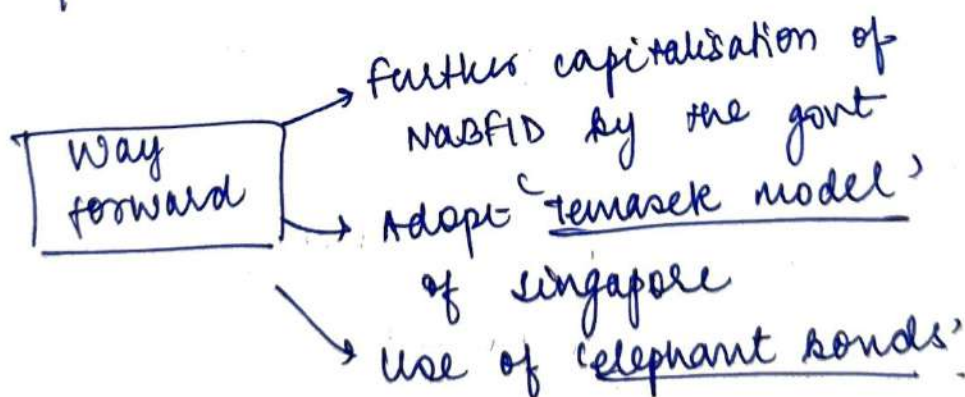 Way
forward
further capitalisation of
NaBFID by the govt
Adopt 'temasek model'
of singapore
Use of 'elephant bonds'.